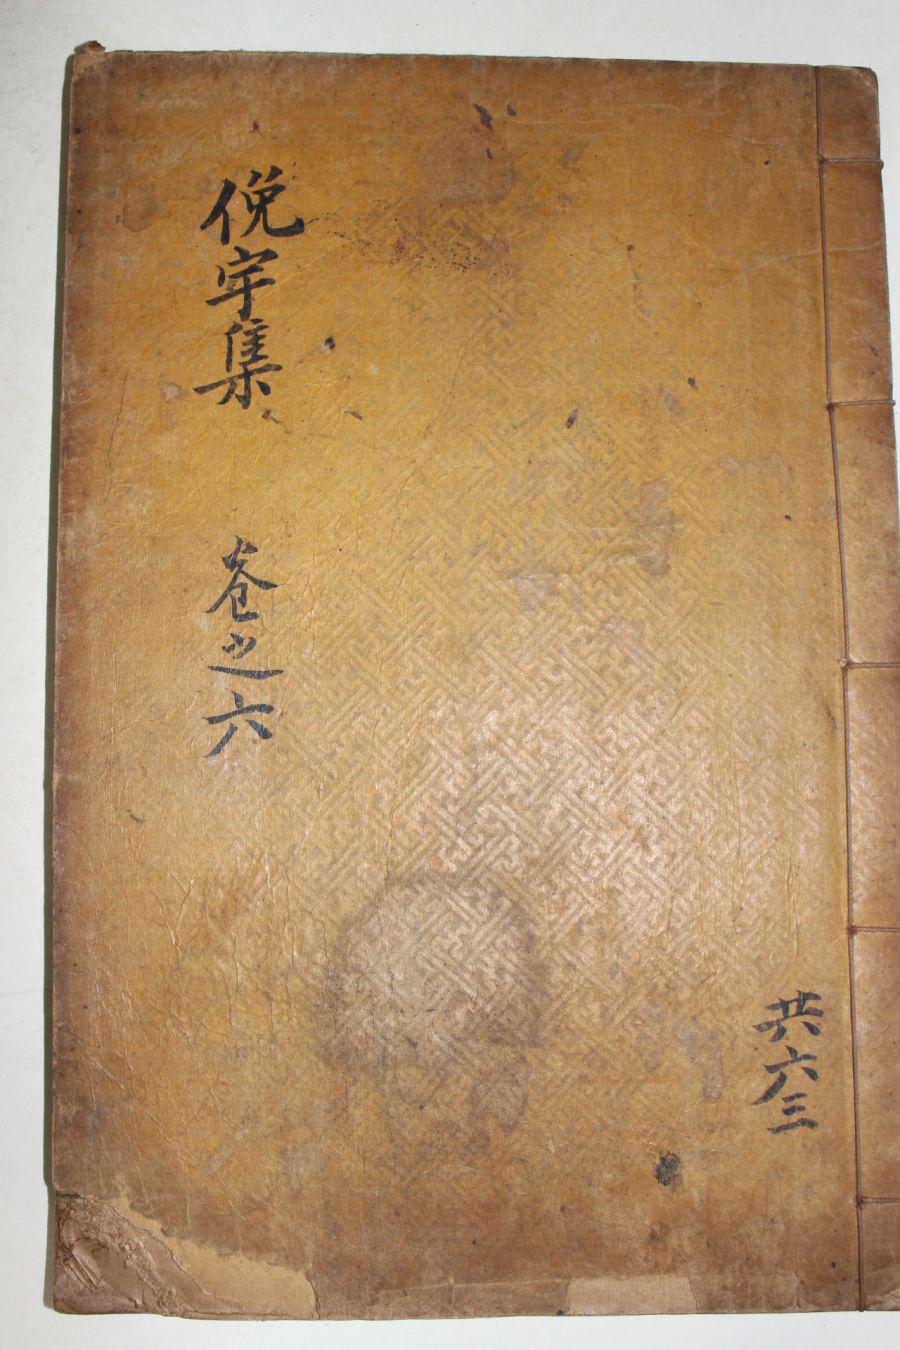 俛宇集 卷之六
共六三